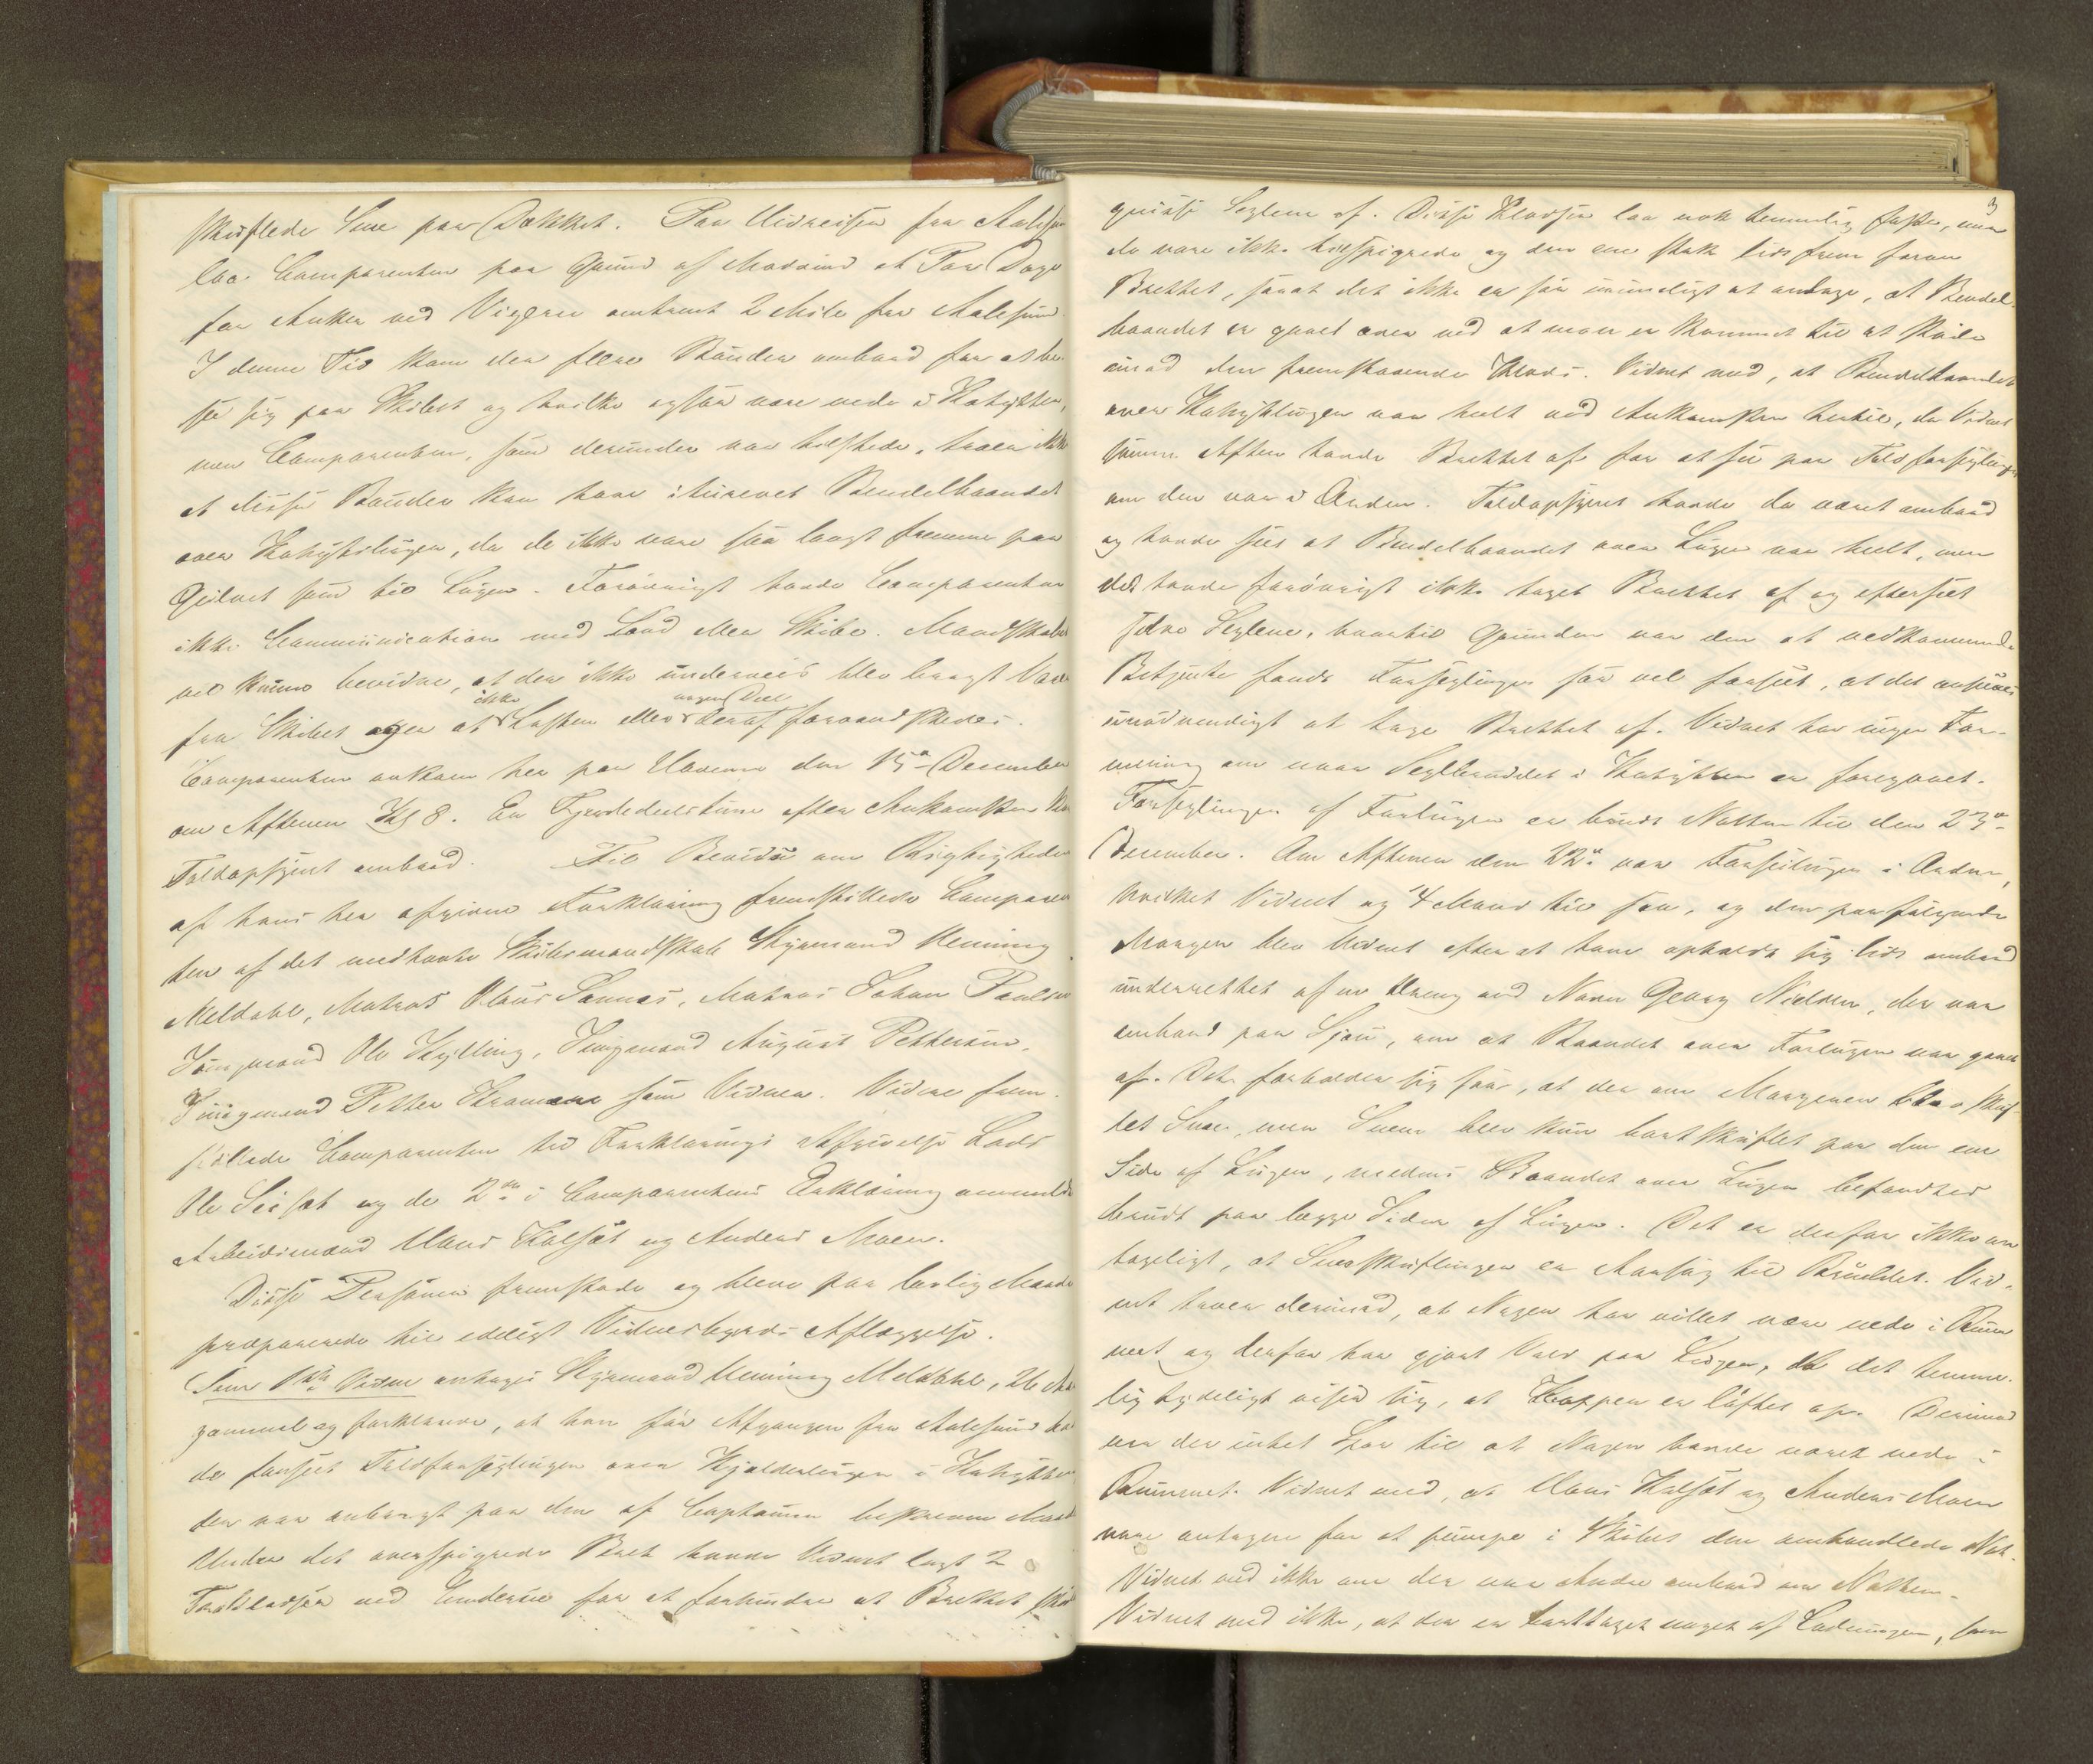 skuflede Snee paa Dækket. Paa Udreisen fra Aalesund
laa Comparenten paa Grund af Modvind et Par Dage
for Anker ved Vigeren omtrent 2 Mile fra Aalesund.
I denne Tid kom der flere Bønder ombord for at be-
see sig paa Skibet og hvilke ogsaa vare nede i Kahytten,
men Comparenten, som derunder var tilstede, troer ikke
at disse Bønder kan have iturevet Bendelbaandet
over Kahytslugen, da de ikke vare saa langt fremme paa
Gulvet som til Lugen. Forøvrigt havde Comparenten
ikke Communication med Land eller Skibe. Mandskabet
vil kunne bevidne, at der ikke underveis blev bragt Varer
fra Skibet og at
ikke
Lasten eller
nogen Deel
deraf forandskedes.
Comparenten ankom her paa Havnen den 15de December
om Aftenen Kl 8. En Fjerdedeelstime efter Ankomsten kom
Toldopsynet ombord. Til Beviis om Rigtigheden
af hans her afgivne Forklaring fremstillede Comparen-
ten af det medhavte Skibsmandskab Styrmand Henning
Meldahl, Matros Claus Sannæs, Matros Johan Paulsen
Jungmand Ole Kylling, Jungmand August Pettersen,
Jungmand Petter Kramer som Vidner. Videre frem-
stillede Comparenten til Forklarings Afgivelse Lods
Ole Seisæt og de 2de i Comparentens Erklæring anmeldte
Arbeidsmænd Claus Kalsæt og Anders Moen.
Disse Personer fremstode og bleve paa lovlig Maade
præparerede til eedeligt Vidnesbyrds Aflæggelse.
Som 1ste Vidne antoges Styrmand Henning Meldahl, 26 Aar
gammel og forklarede, at han før Afgangen fra Aalesund hav-
de forseet Toldforseglingen over Kjælderlugen i Kahytten
der var anbragt paa den af Captainen beskrevne Maade
Under det overspigrede Bret havde Vidnet lagt 2
Træklodser ved Enderne for at forhindre at Brettet skulde
3
gnisse Seglene af. Disse Klodser laa nok temmelig faste, men
de vare ikke tilspigrede og den ene stak lidt frem foran
Brettet, saaat det ikke er saa urimeligt at antage, at Bendel-
baandet er gaaet over ved at man er kommet til at støde
imod den fremstaaende Klods. Vidnet ved, at Bendelbaandet
over Kahytslugen var heelt ved Ankomsten hertil, da Vidnet
samme Aften havde Brettet af for at see paa Toldforseglingen
om den var i Orden. Toldopsynet havde da været ombord
og havde seet at Bendelbaandet over Lugen var heelt, men
det havde forøvrigt ikke taget Brettet af og efterseet
selve Seglene, hvortil Grunden var den at vedkommende
Betjente fandt Forseglingen saa vel forseet, at det ansaaes
unødvendigt at tage Brettet af. Vidnet har ingen For-
mening om naar Seglbruddet i Kahytten er foregaaet.
Forseglingen af Forlugen er brudt Natten til den 23de
December. Om Aftenen den 22de var Forseilingen i Orden,
hvilket Vidnet og 4 Mand til saa, og den paafølgende
Morgen blev Vidnet efter at have opholdt sig lidt ombord
underrettet af en Dreng ved Navn Georg Nielsen, der var
ombord paa Sjou, om at Baandet over Forlugen var gaaet
af. Det forholder sig saa, at der om Morgenen blev skuf-
let Snee, men Sneen blev kun bortskuflet paa den ene
Side af Lugen, medens Baandet over Lugen befandtes
brudt paa begge Sider af Lugen. Det er derfor ikke an-
tageligt, at Sneeskuflingen er Aarsag til Bruddet. Vid-
net troer derimod, at Nogen har villet være nede i Rum-
met og derfor har gjort Vold paa Lugen, da det temme-
lig tydeligt viste sig, at Kappen er løftet op. Derimod
var der intet Spor til at Nogen havde været nede i
Rummet. Vidnet ved, at Claus Kalsæt og Anders Moen
vare antagne for at pumpe i Skibet den omhandlede Nat.
Vidnet ved ikke om der var Andre ombord om Natten.
Vidnet ved ikke, at der er borttaget noget af Ladningen, som